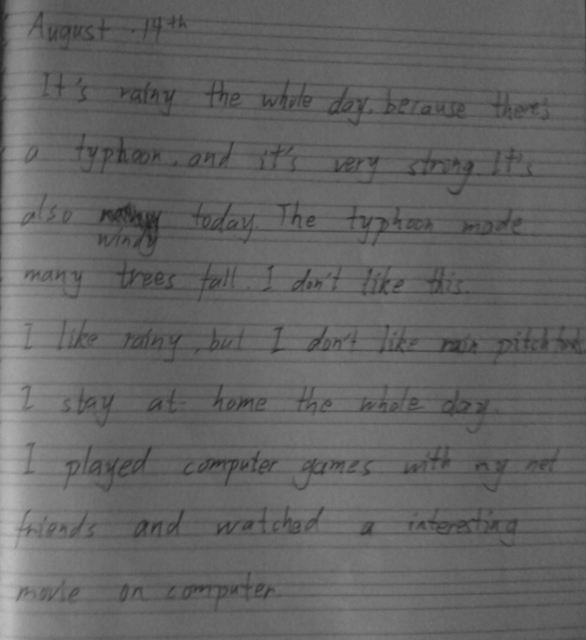 August 14th
It's rainy the whole day, because there's
a typhoon, and it's very strong. It's
also windy today. The typhoon made
many trees fall. I don't like this.
I like rainy, but I don't like rain pitchfork
I stay at home the whole day.
I played computer games with my net
friends and watched a interesting
movie on computer.